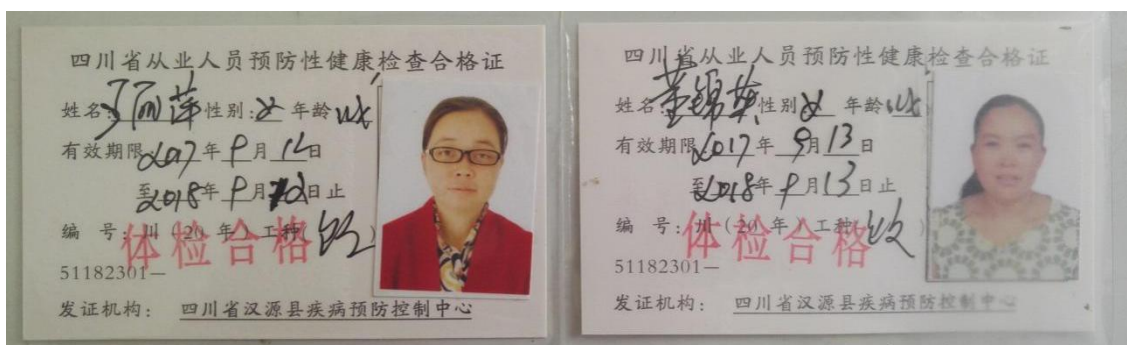 四川省从业人员预防性健康检查合格证
姓名: 丽萍 性别: 女 年龄
有效期限 2017年9月12日
至2018年9月 日止
编 号: 川(20 年)工种( )
体检合格
51182301—
发证机构: 四川省汉源县疾病预防控制中心
四川省从业人员预防性健康检查合格证
姓名: 董锦英 性别 女 年龄
有效期限 2017年9月13日
至2018年9月13日止
编 号: 川(20 年)工种( )
体检合格
51182301—
发证机构: 四川省汉源县疾病预防控制中心